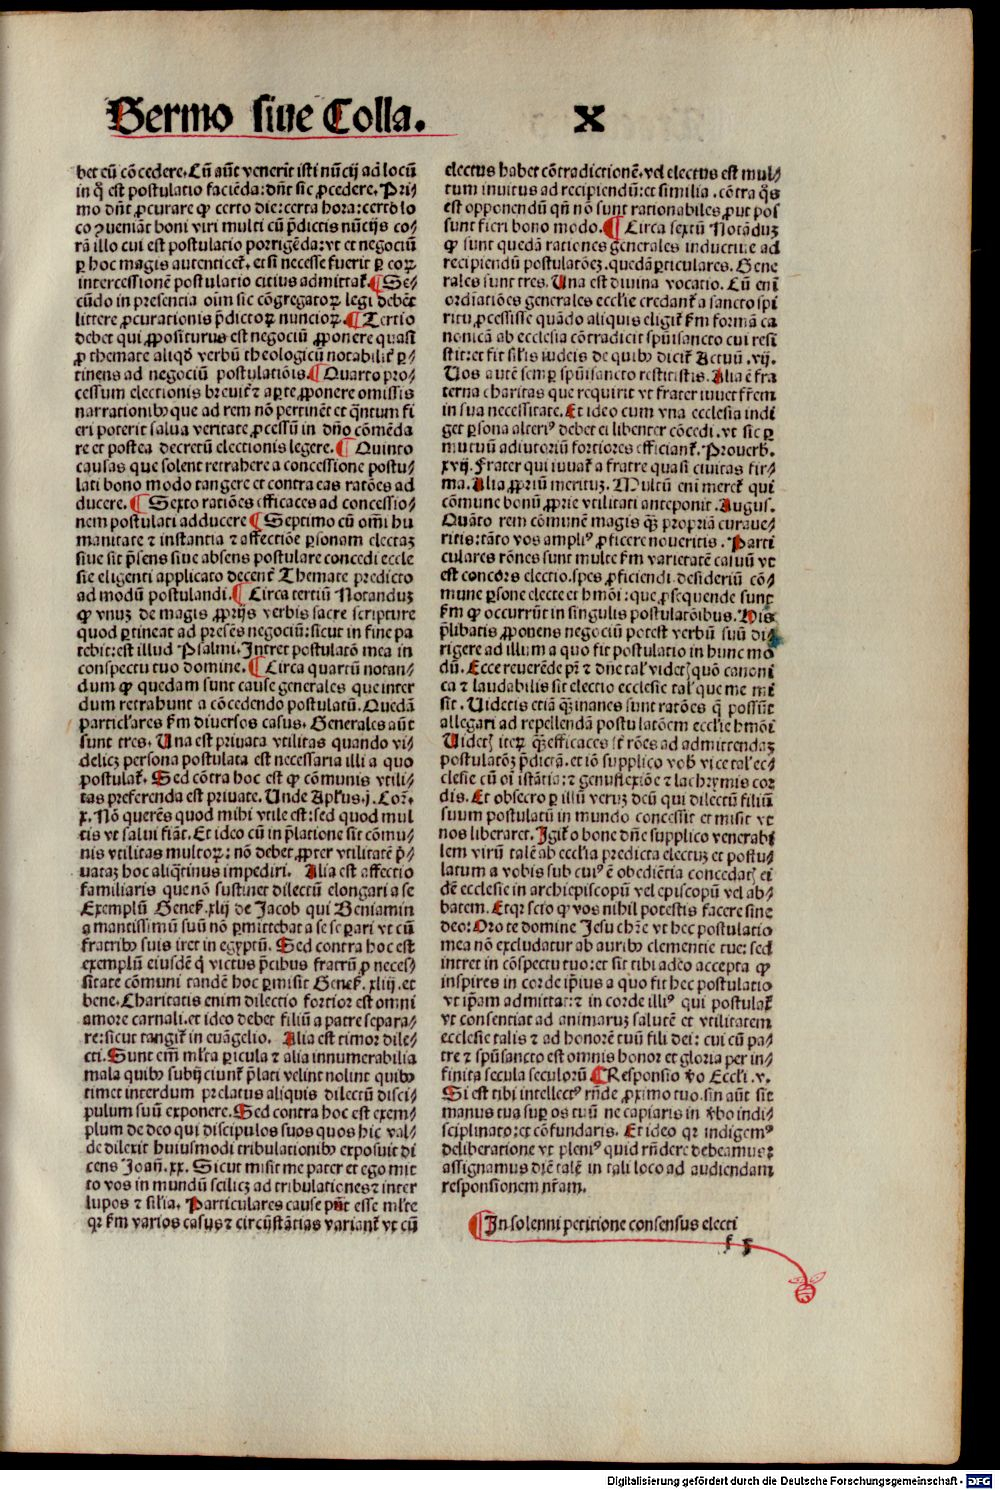 Sermo siue Colla.
X
bet eū cōcedere. Cū aūt venerīt isti nūcij ad locū
in q̄ est postulatio faciēda: dn̄t sic ꝓcedere. Pri⸗
mo dn̄t ꝓcurare ꝙ certo die: certa hora: certo lo
co ꝯueniāt boni viri multi cū p̄dictis nūcijs co⸗
rā illo cui est postulatio porrigēda: vt et negociū
ꝑ hoc magis autenticet᷑. et si necesse fuerit ꝑ eoꝝ
intercessionē postulatio citius admittat᷑. ¶ Se⸗
cūdo in presentia oīm sic cōgregatoꝝ legi debēt
littere ꝓcurationis p̄dictoꝝ nuncioꝝ. ¶ Tertio
debet qui ꝓpositurus est negociū ꝓponere quasi
ꝓ themate aliqd̓ verbū theologicū notabilit᷑ ꝑ⸗
tinens ad negociū postulatiōis. ¶ Quarto pro⸗
cessum electionis breuit᷑ ⁊ aꝑte ꝓponere omissis
narrationibꝰ que ad rem nō pertinēt et q̄ntum fi
eri poterit salua veritate ꝓcessū in dn̄o cōmēda
re et postea decretū electionis legere. ¶ Quinto
causas que solent retrahere a concessione postu⸗
lati bono modo tangere et contra eas ratōes ad
ducere. ¶ Sexto ratiōes efficaces ad concessio⸗
nem postulati adducere ¶ Septimo cū om̄i hu
manitate ⁊ instantia ⁊ affectiōe ꝑsonam electaꝫ
siue sit p̄sens siue absens postulare concedi eccle
sie eligenti applicato decent᷑ Themate predicto
ad modū postulandi. ¶ Circa tertiū Notanduꝫ
ꝙ vnuꝫ de magis ꝓprijs verbis sacre scripture
quod ꝑtineat ad presēs negociū: sicut in fine pa
tebit: est illud Psalmi. Intret postulatō mea in
conspectu tuo domine. ¶ Circa quartū notan⸗
dum ꝙ quedam sunt cause generales que inter
dum retrahunt a cōcedendo postulatū. Quedā
particl̓ares s̄m diuersos casus. Generales aūt
sunt tres. Una est priuata vtilitas quando vi⸗
delicꝫ persona postulata est necessaria illi a quo
postulat᷑. Sed cōtra hoc est ꝙ cōmunis vtili⸗
tas preferenda est priuate. Unde Apl̓us. j. Cor᷑.
x. Nō querēs quod mihi vtile est: sed quod mul
tis vt salui fiāt. Et ideo cū in p̄latione sit cōmu⸗
nis vtilitas multoꝝ: nō debet ꝓpter vtilitatē p̄⸗
uataꝫ hoc aliq̄tinus impediri. Alia est affectio
familiaris que nō sustinet dilectū elongari a se
Exemplū Genes᷑. xlij de Jacob qui Beniamin
amantissimū suū nō ꝑmittebat a se seꝑari vt cū
fratribꝰ suis iret in egyptū. Sed contra hoc est
exemplū eiusdē q̄ victus p̄cibus fratrū ꝓ neces⸗
sitate cōmuni tandē hoc ꝑmisit Genes᷑. xliij. et
bene. Charitatis enim dilectio fortior est omni
amore carnali. et ideo debet filiū a patre separa⸗
re: sicut tangit᷑ in euāgelio. Alia est timor dile⸗
cti. Sunt eīm ml̓ta ꝑicula ⁊ alia innumerabilia
mala quibꝰ subijciunt᷑ p̄lati velint nolint quibꝰ
timet interdum prelatus aliquis dilectū disci⸗
pulum suū exponere. Sed contra hoc est exem⸗
plum de deo qui discipulos suos quos hic val⸗
de dilexit huiusmodi tribulationibꝰ exposuit di
cens Joan̄. xx. Sicut misit me pater et ego mit
to vos in mundū scilicꝫ ad tribulationes ⁊ inter
lupos ⁊ sil̓ia. Particulares cause pn̄t esse ml̓te
qꝛ s̄m varios casus ⁊ circūstātias variant᷑ vt cū
electus habet cōtradictionē. vel electus est mul⸗
tum inuitus ad recipiendū: et similia. cōtra q̄s
est opponendū qn̄ nō sunt rationabiles ꝓut pos
sunt fieri bono modo. ¶ Circa sextū Notāduꝫ
ꝙ sunt quedā rationes generales inductiue ad
recipiendū postulatōeꝫ. quedā ꝑticulares. Gene
rales sunt tres. Una est diuina vocatio. Cū eni
ordīatiōes generales eccl̓ie credant᷑ a sancto spi
ritu ꝓcessisse quādo aliquis eligit᷑ s̄m formā ca
nonicā ab ecclesia cōtradicit spūisancto cui resi
stit: et fit sil̓is iudeis de quibꝰ dicit᷑ Actuū. vij.
Uos autē semꝑ spūisancto restitistis. Alia ē fra
terna charitas que requirit vt frater iuuet fr̄em
in sua necessitate. Et ideo cum vna ecclesia indi
get ꝑsona alteriꝰ debet ei libenter cōcedi. vt sic ꝑ
mutuū adiutoriū fortiores efficiant᷑. Prouerb̓.
xvij. Frater qui iuuat᷑ a fratre quasi ciuitas fir⸗
ma. Alia ꝓpriū meritūꝫ. Multū eni meret᷑ qui
cōmune bonū ꝓprie vtilitati anteponit. Augus.
Quāto rem cōmunē magis qꝫ̄ propriā curaue⸗
ritis: tāto vos ampliꝰ ꝓficere noueritis. Parti
culares rōnes sunt multe s̄m varietatē casuū vt
est concors electio. spes ꝓficiendi. desideriū cō⸗
mune ꝑsone electe et hmōi: que ꝓsequende sunt
s̄m ꝙ occurrūt in singulis postulatōibus. His
p̄libatis ꝓponens negociū potest verbū suū di⸗
rigere ad illum a quo fit postulatio in hunc mo
dū. Ecce reuerēde pr̄ ⁊ dn̄e tal̓ videtꝭ quō canoni
ca ⁊ laudabilis sit electio ecclesie tal̓ que me mi
sit. Uidetis etiā qꝫ̄ inanes sunt ratōes q̄ possūt
allegari ad repellendā postulatōem eccl̓ie hmōi
Uidetꝭ iteꝝ qꝫ̄ efficaces st̄ rōes ad admittendaꝫ
postulatōeꝫ p̄dictā. et iō supplico vob̓ vice tal̓ ec⸗
clesie cū oī istātia: ⁊ genuflexiōe ⁊ lachrymis cor
dis. Et obsecro ꝑ illū veruꝫ deū qui dilectū filiū
suum postulatū in mundo concessit et misit vt
nos liberaret. Igit᷑ o bone dn̄e supplico venerabi
lem virū talē ab eccl̓ia predicta electuꝫ et postu⸗
latum a vobis sub cuiꝰ ē obediētia concedatꝭ ei
dē ecclesie in archiepiscopū vel episcopū vel ab⸗
batem. Et qꝛ scio ꝙ vos nihil potestis facere sine
deo: Oro te domine Jesu chr̄e vt hec postulatio
mea nō excludatur ab auribꝰ clementie tue: sed
intret in cōspectu tuo: et sit tibi adeo accepta ꝙ
inspires in corde ip̄ius a quo fit hec postulatio
vt ip̄am admittat: ⁊ in corde illiꝰ qui postulat᷑
vt consentiat ad animaruꝫ salutē et vtilitatem
ecclesie talis ⁊ ad honorē tuū fili dei: cui cū pa⸗
tre ⁊ spūsancto est omnis honor et gloria per in⸗
finita secula seculorū ¶ Responsio v̓o Eccl̓i. v.
Si est tibi intellectꝰ rn̄de ꝓximo tuo. sin aūt sit
manus tua suꝑ os tuū ne capiaris in v̓bo indi⸗
sciplinato: et cōfundaris. Et ideo qꝛ indigemꝰ
deliberatione vt pleniꝰ quid rn̄dere debeamus:
assignamus diē talē in tali loco ad audiendam
responsionem nr̄am.
¶ In solenni petitione consensus electi